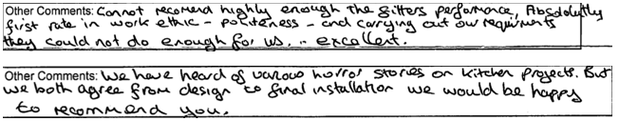 Other Comments: Cannot recomend highly enough the fitters perfomance, Absolutly
first rate in work ethic - politeness - and carrying out our requirments
they could not do enough for us, .. excellent.
Other Comments: We have heard of various horror stories on kitchen projects. But
we both agree from design to final installation we would be happy
to recommend you.